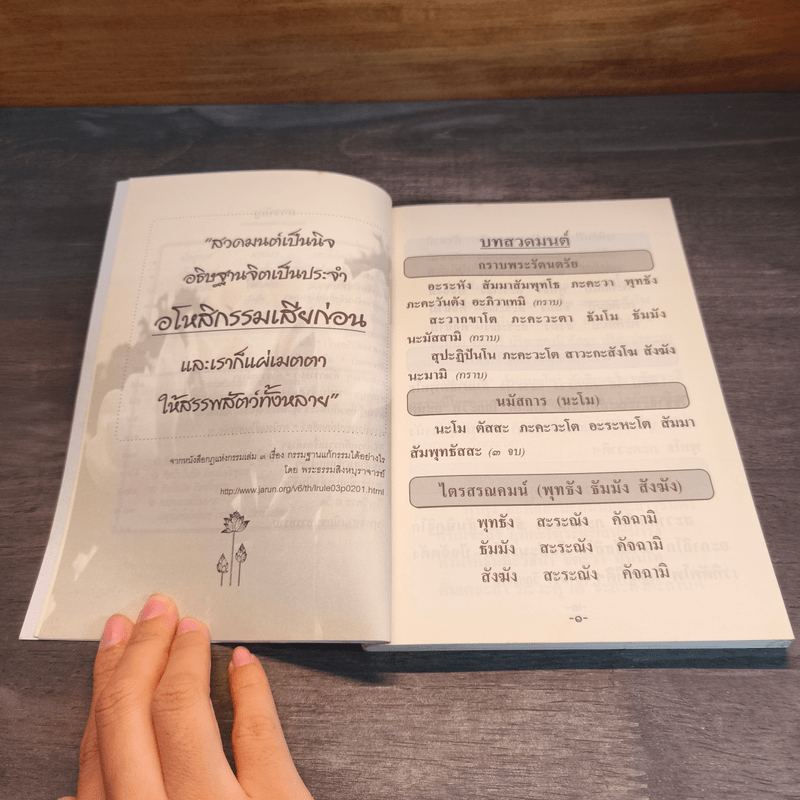 "สวดมนต์เป็นนิจ
อธิษฐานจิตเป็นประจำ
อโหสิกรรมเสียก่อน
และเราก็แผ่เมตตา
ให้สรรพสัตว์ทั้งหลาย"
จากหนังสือกฎแห่งกรรมเล่ม ๓ เรื่อง กรรมฐานแก้กรรมได้อย่างไร
โดย พระธรรมสิงหบุราจารย์
http://www.jarun.org/v6/th/lrule03p0201.html
บทสวดมนต์
กราบพระรัตนตรัย
อะระหัง สัมมาสัมพุทโธ ภะคะวา พุทธัง
ภะคะวันตัง อะภิวาเทมิ (กราบ)
สะวากขาโต ภะคะวะตา ธัมโม ธัมมัง
นะมัสสามิ (กราบ)
สุปะฏิปันโน ภะคะวะโต สาวะกะสังโฆ สังฆัง
นะมามิ (กราบ)
นมัสการ (นะโม)
นะโม ตัสสะ ภะคะวะโต อะระหะโต สัมมา
สัมพุทธัสสะ (๓ จบ)
ไตรสรณคมน์ (พุทธัง ธัมมัง สังฆัง)
พุทธัง สะระณัง คัจฉามิ
ธัมมัง สะระณัง คัจฉามิ
สังฆัง สะระณัง คัจฉามิ
-๑-